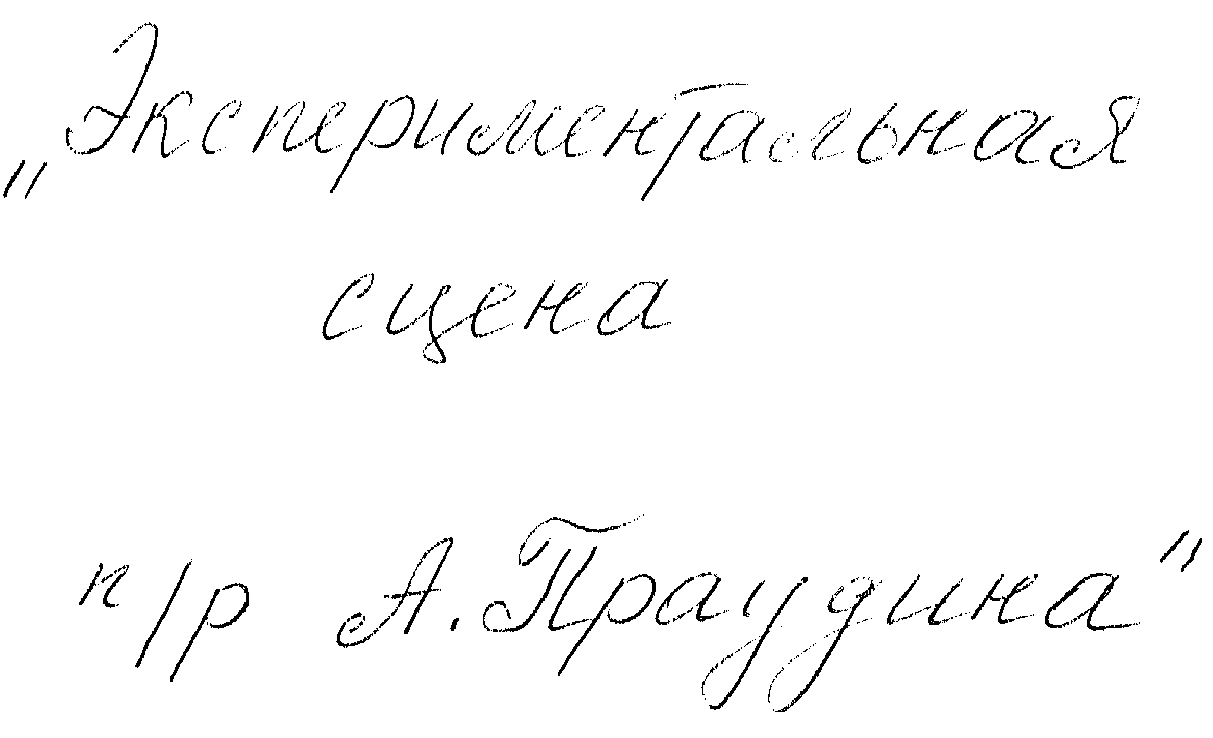 „Экспериментальная
сцена
п/р А. Праудина"